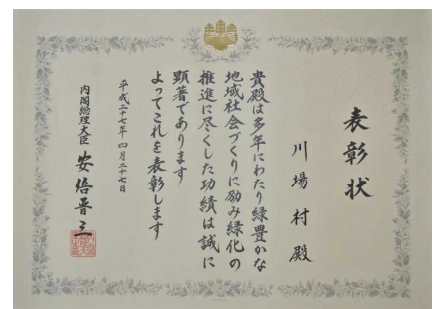 表彰状
川場村殿
貴殿は多年にわたり緑豊かな
地域社会づくりに励み緑化の
推進に尽くした功績は誠に
顕著であります
よってこれを表彰します
平成二十七年四月二十七日
内閣総理大臣 安倍晋三